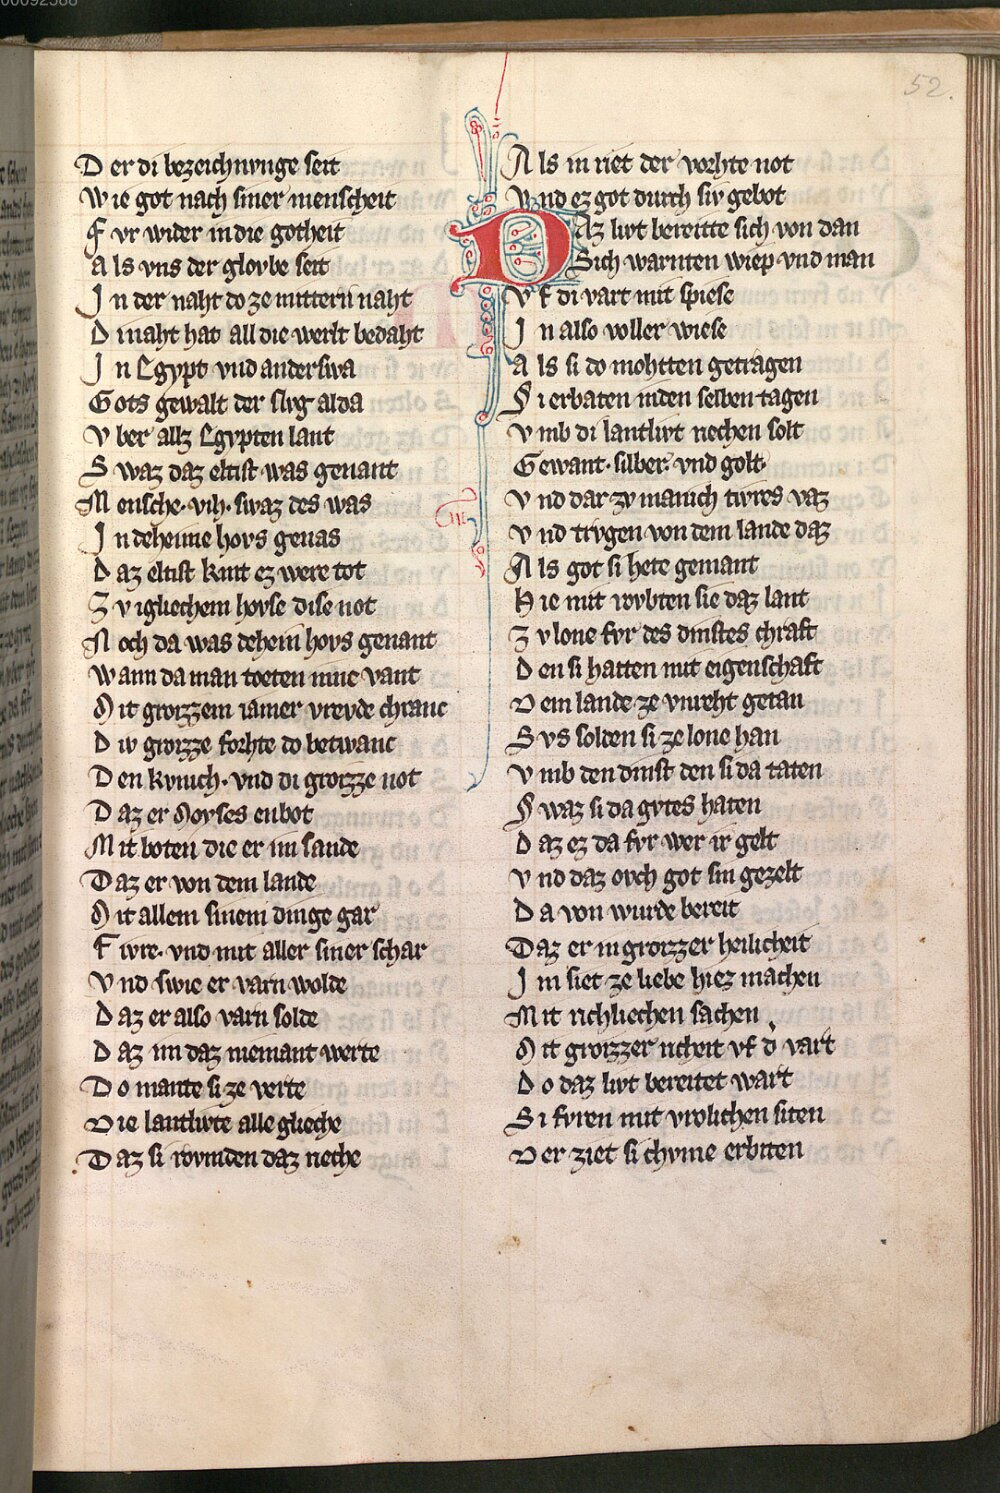 00092588
52.
D er di bezeichnvnge seit
W ie got nach siner menscheit
F vr wider in die gotheit
A ls vns der glovbe seit
J n der naht do ze mittern naht
D i naht hat all die werlt bedaht
J n Egypt vnd anderswa
Gots gewalt der slvg alda
V ber allz Egypten lant
S waz daz eltist was genant
M ensche· vih· swaz des was
J n deheime hovs genas
D az eltist kint ez were tot
Z v igliechem hovse dise not
N och da was dehein hovs genant
W ann da man toeten inne vant
M it groizzem iamer vrevde chranc
D iv groizze forhte do betwanc
D en kvnich· vnd di groizze not
D az er Moyses enbot
M it boten die er im sande
D az er von dem lande
M it allem sinem dinge gar
F wre· vnd mit aller siner schar
V nd swie er varn wolde
D az er also varn solde
D az im daz niemant werte
D o mante si ze verte
D ie lantlivte alle glieche
D az si rovmden daz riche
A ls in riet der vorhte not
V nd ez got durch siv gebot
D az livt bereitte sich von dan
Sich warnten wiep vnd man
V f di vart mit spiese
J n also voller wiese
A ls si do mohtten getragen
S i erbaten in den selben tagen
V mb di lantlivt riechen solt
Gewant· silber· vnd golt·
V nd dar zv manich tivres vaz
V nd trvgen von dem lande daz
A ls got si hete gemant
H ie mit rovbten sie daz lant
Z v lone fvr des dinstes chraft
D en si hatten mit eigenschaft
D em lande ze vnreht getan
S vs solden si ze lone han
V mb den dinst den si da taten
S waz si da gvtes haten
D az ez da fvr wer ir gelt
V nd daz ovch got sin gezelt
D a von wurde bereit
D az er in groizzer heilicheit
J m siet ze liebe hiez machen
M it richliechen sachen
M it groizzer richeit vf d' vart
D o daz livt bereitet wart
S i fvren mit vrolichen siten
D er ziet si chvme erbiten